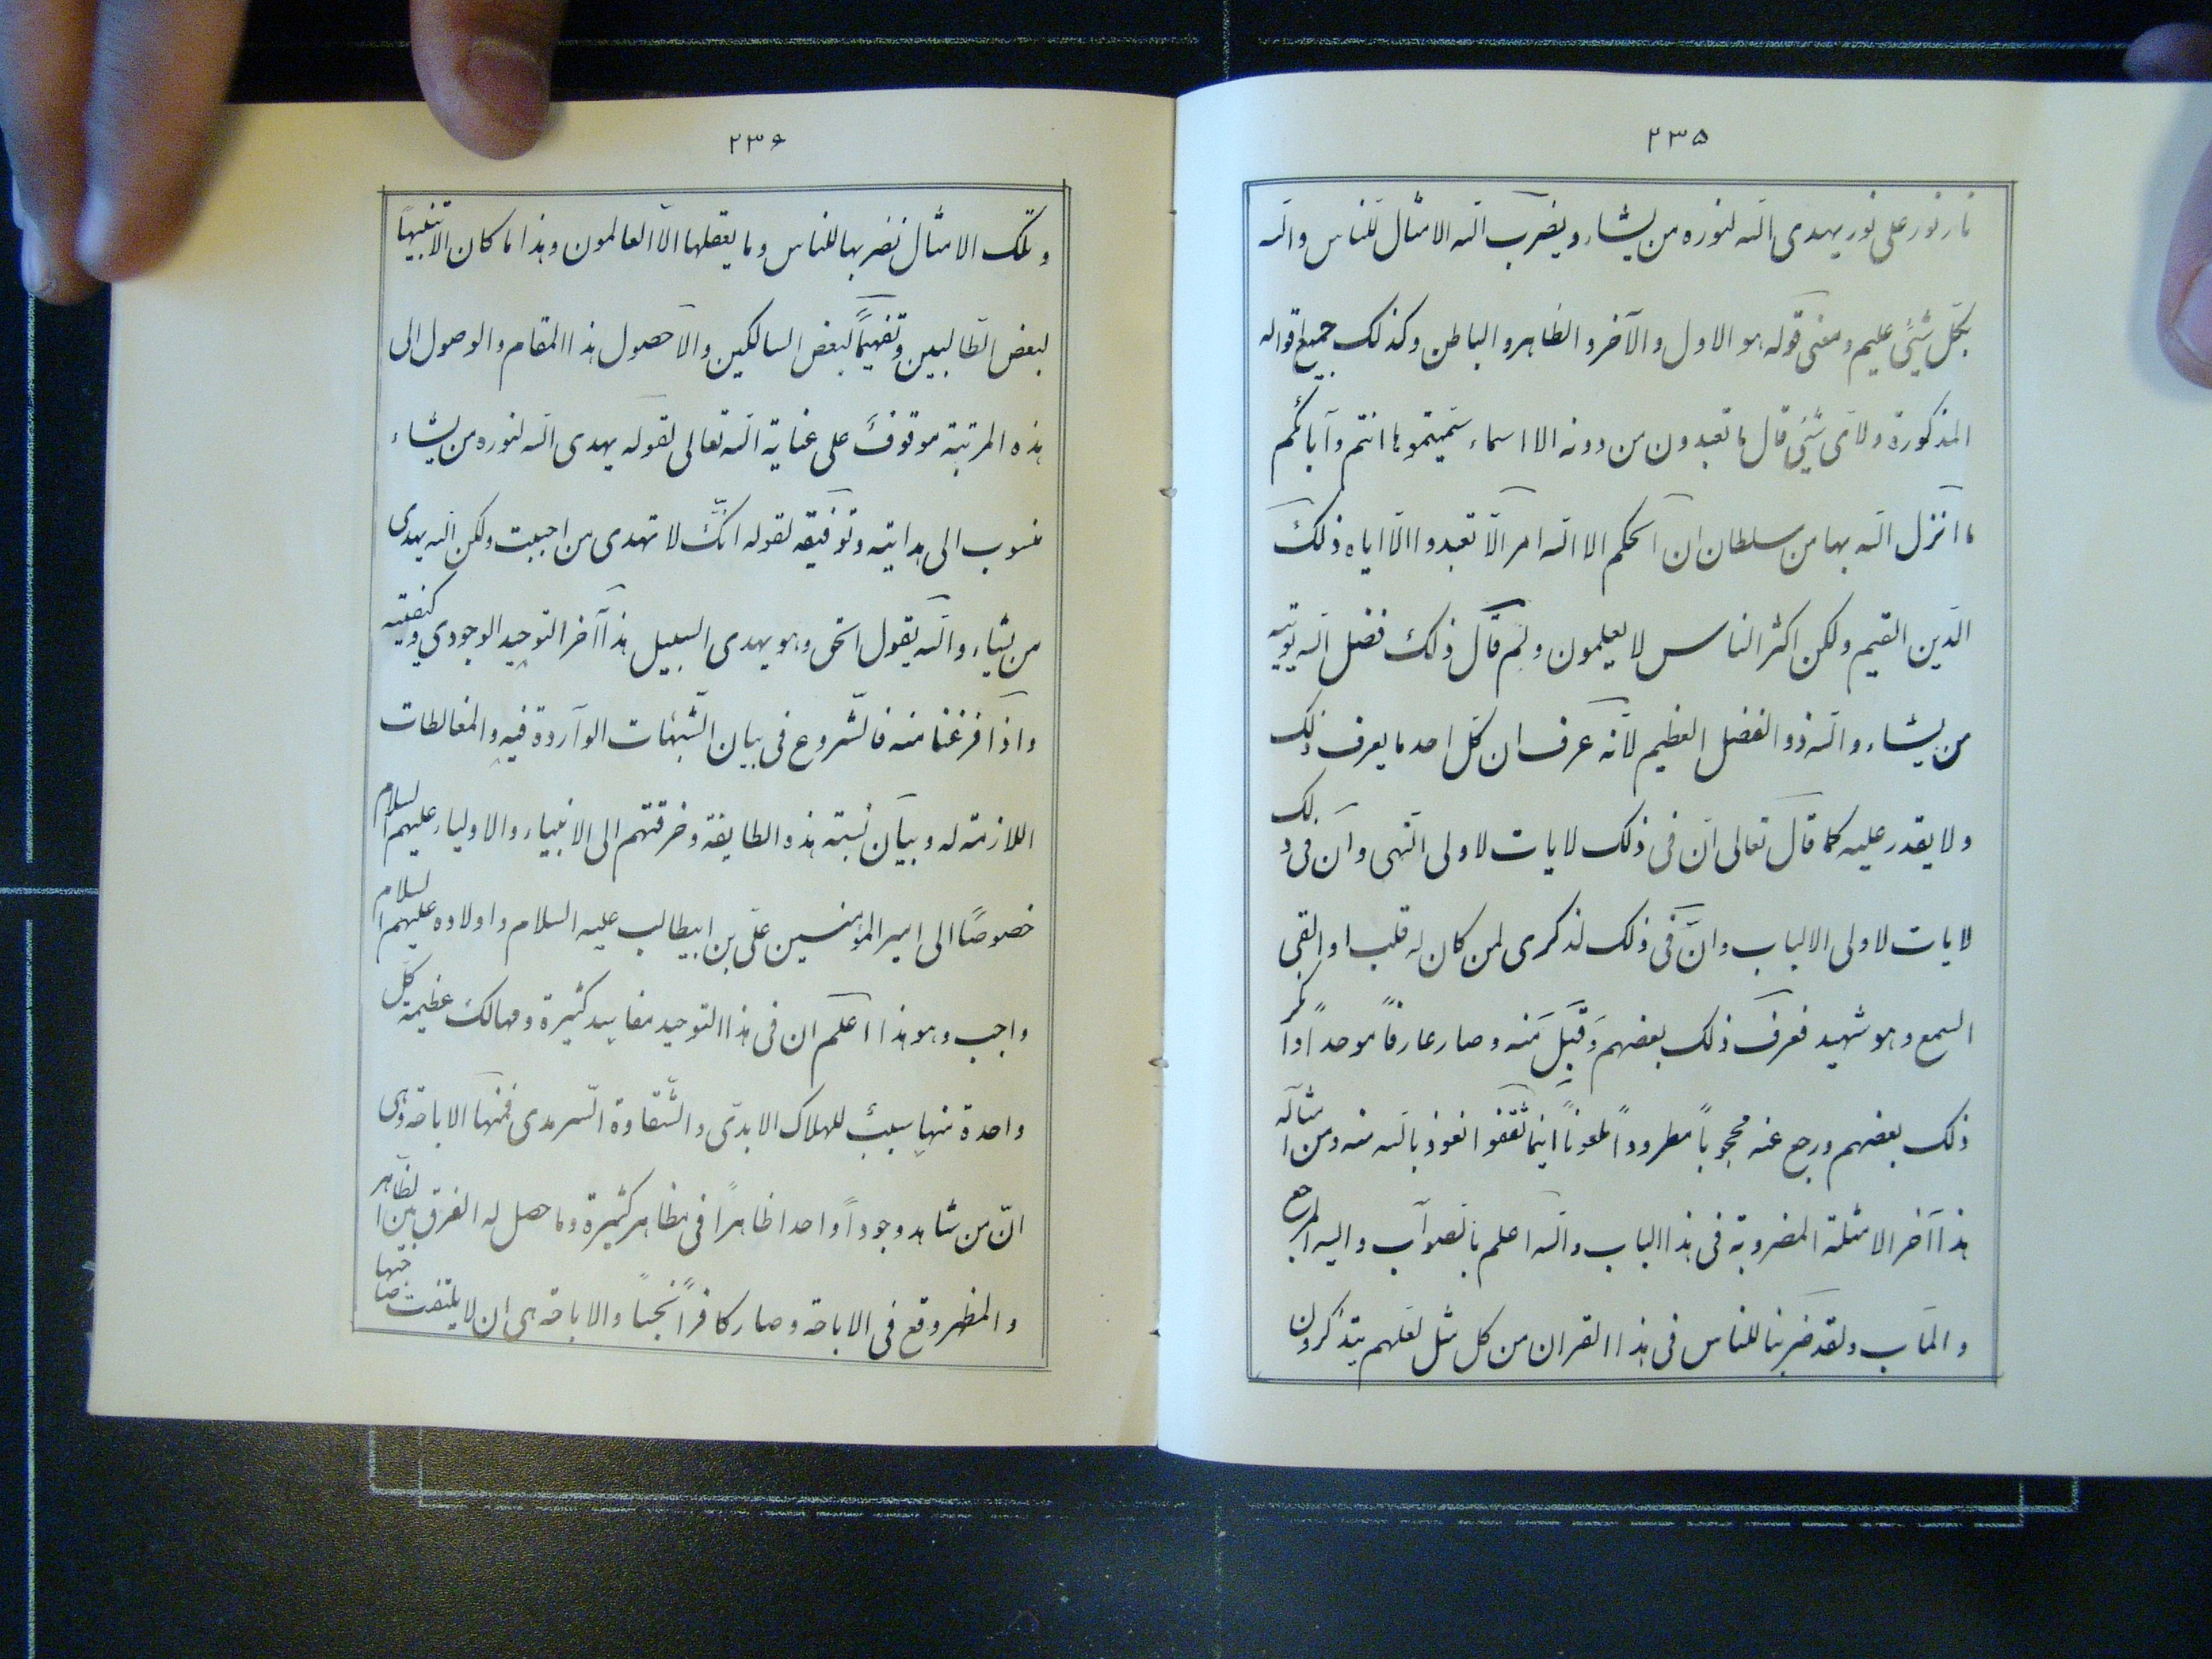 ۲۳۵
نار نور على نور يهدى الله لنوره من يشاء و يضرب الله الامثال للناس والله
بكل شئ عليم ومعنى قوله هو الاول والآخر والظاهر والباطن وكذلك جميع اقواله
المذكورة ولاى شئ قال ما تعبدون من دونه الا اسماء سميتموها انتم وآبائكم
ما انزل الله بها من سلطان ان الحكم الا الله امر الا تعبدوا الا اياه ذلك
الدين القيم ولكن اكثر الناس لا يعلمون ولم قال ذلك فضل الله يوتيه
من يشاء والله ذو الفضل العظيم لانه عرف ان كل احد ما يعرف ذلك
ولا يقدر عليه كما قال تعالى ان فى ذلك لايات لاولى النهى وان فى ذلك
لايات لاولى الالباب وان فى ذلك لذكرى لمن كان له قلب او القى
السمع وهو شهيد فعرف ذلك بعضهم وقبل منه وصار عارفاً موحداً وانكر
ذلك بعضهم ورجع عنه محجوباً مطروداً ملعوناً اينما ثقفوا نعوذ بالله منه ومن امثاله
هذا آخر الامثلة المضروبة فى هذا الباب والله اعلم بالصواب واليه المرجع
والمآب ولقد ضربنا للناس فى هذا القران من كل مثل لعلهم يتذكرون
۲۳۶
وتلك الامثال نضربها للناس وما يعقلها الا العالمون وهذا ما كان الا تنبيهاً
لبعض الطالبين وتفهيماً لبعض السالكين والا حصول هذا المقام والوصول الى
هذه المرتبة موقوف على عناية الله تعالى لقوله يهدى الله لنوره من يشاء
منسوب الى هدايته وتوفيقه لقوله انك لا تهدى من احببت ولكن الله يهدى
من يشاء والله يقول الحق وهو يهدى السبيل هذا آخر التوحيد الوجودي وكيفيته
واذا فرغنا منه فالشروع فى بيان الشبهات الواردة فيه والمغالطات
اللازمة له وبيان نسبته هذه الطايفة وخرقتهم الى الانبياء والاولياء عليهم السلام
خصوصاً الى امير المؤمنين على بن ابيطالب عليه السلام واولاده عليهم السلام
واجب وهو هذا اعلم ان فى هذا التوحيد مفاسد كثيرة ومهالك عظيمة كل
واحدة منها سبب للهلاك الابدى والشقاوة السرمدى فمنها الاباحة وهى
ان من شاهد وجوداً واحدا ظاهراً فى مظاهر كثيرة وما حصل له الفرق بين الظاهر
والمظهر وقع فى الاباحة وصار كافراً نجساً والاباحة هى ان لا يلتفت صاحبها